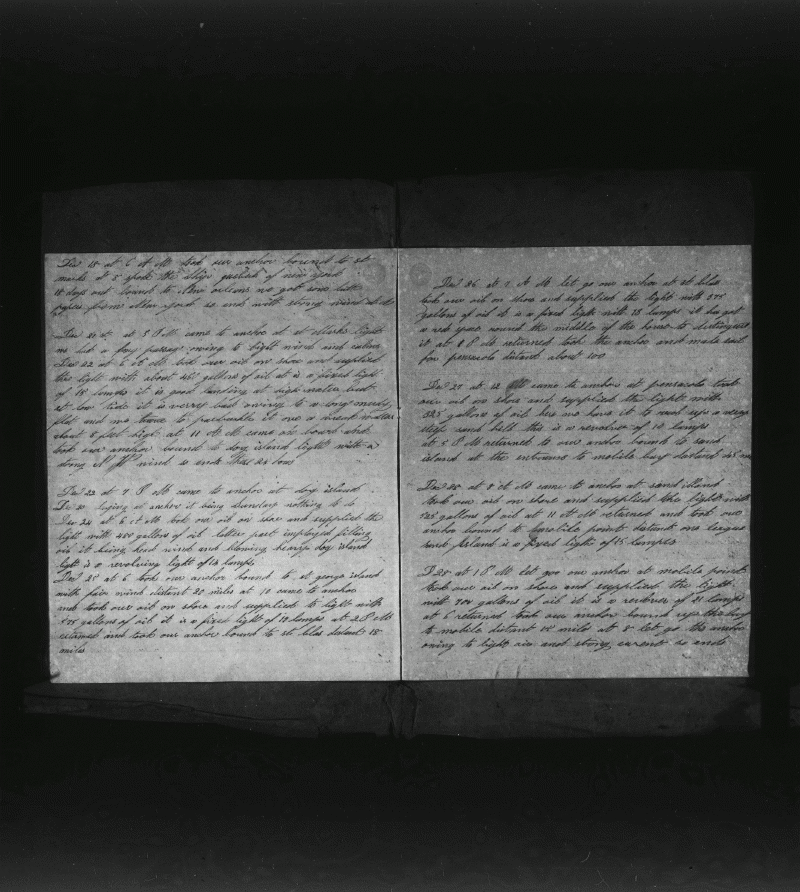 Dec 18 at 6 A M took our anchor bound to st
marks at 5 spoke the Ship of new york
18 days out bound to New orleans we got some late
papers from New york so ends with strong wind
Dec 21 at 5 P M came to anchor at st Marks light
we had a long passage owing to light wind and calms
Dec 22 at 6 A M took our oil on shore and supplied
the light with about gallons of oil it is a fixed light
of 15 lamps it is good landing at high water but
at low tide it is verry bad owing to a long muddy
flat and no
about 8 feet high at 11 A M came on board and
took our anchor bound to dog island light with a
strong wind so ends these 24 hours
Dec 23 at 7 P M came to anchor at dog island
Dec lying at anchor it being Sunday nothing to do
Dec 24 at 6 A M took our oil on shore and supplied the
light with 480 gallons of oil latter part imployed filling
oil it being head wind and blowing heavy dog island
light is a revolving light of 14 lamps
Dec 25 at 6 took our anchor bound to st george island
with fair wind distant 20 miles at 10 came to anchor
and took our oil on shore and supplied the light with
475 gallons of oil it is a fixed light of 13 lamps at 2 P M
returned and took our anchor bound to st blas distant 18
miles
Dec 26 at 7 A M let go our anchor at st blas
took our oil on shore and supplied the light with 575
gallons of oil it is a fixed light with 15 lamps it has got
a red spot round the middle of the house to distinguish
it at 8 P M returned took the anchor and made sail
for pensacola distant about 100
Dec 27 at 12 M came to anchor at pensacola took
our oil on shore and supplied the light with
525 gallons of oil here we have it to road up a verry
steep sand hill this is a revolver of 10 lamps
at 5 P M returned to our anchor bound to sand
island at the entrance to mobile bay distant 45 m
Dec 28 at 8 A M came to anchor at sand island
took our oil on shore and supplied the light with
525 gallons of oil at 11 A M returned and took our
anchor bound to mobile point distant one league
sand Island is a fixed light of 15 lamps
D 28 at 1 P M let goo our anchor at mobile point
took our oil on shore and supplied the light
with 704 gallons of oil it is a revolver of 21 lamps
at 5 returned took our anchor bound up the bay
to mobile distant miles at 8 let go the anchor
owing to light air and strong current so ends